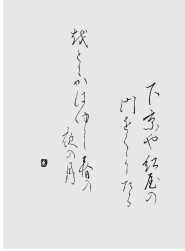 下京や紅屋の
門をくゝりたる
をとこかはゆし春の
夜の月